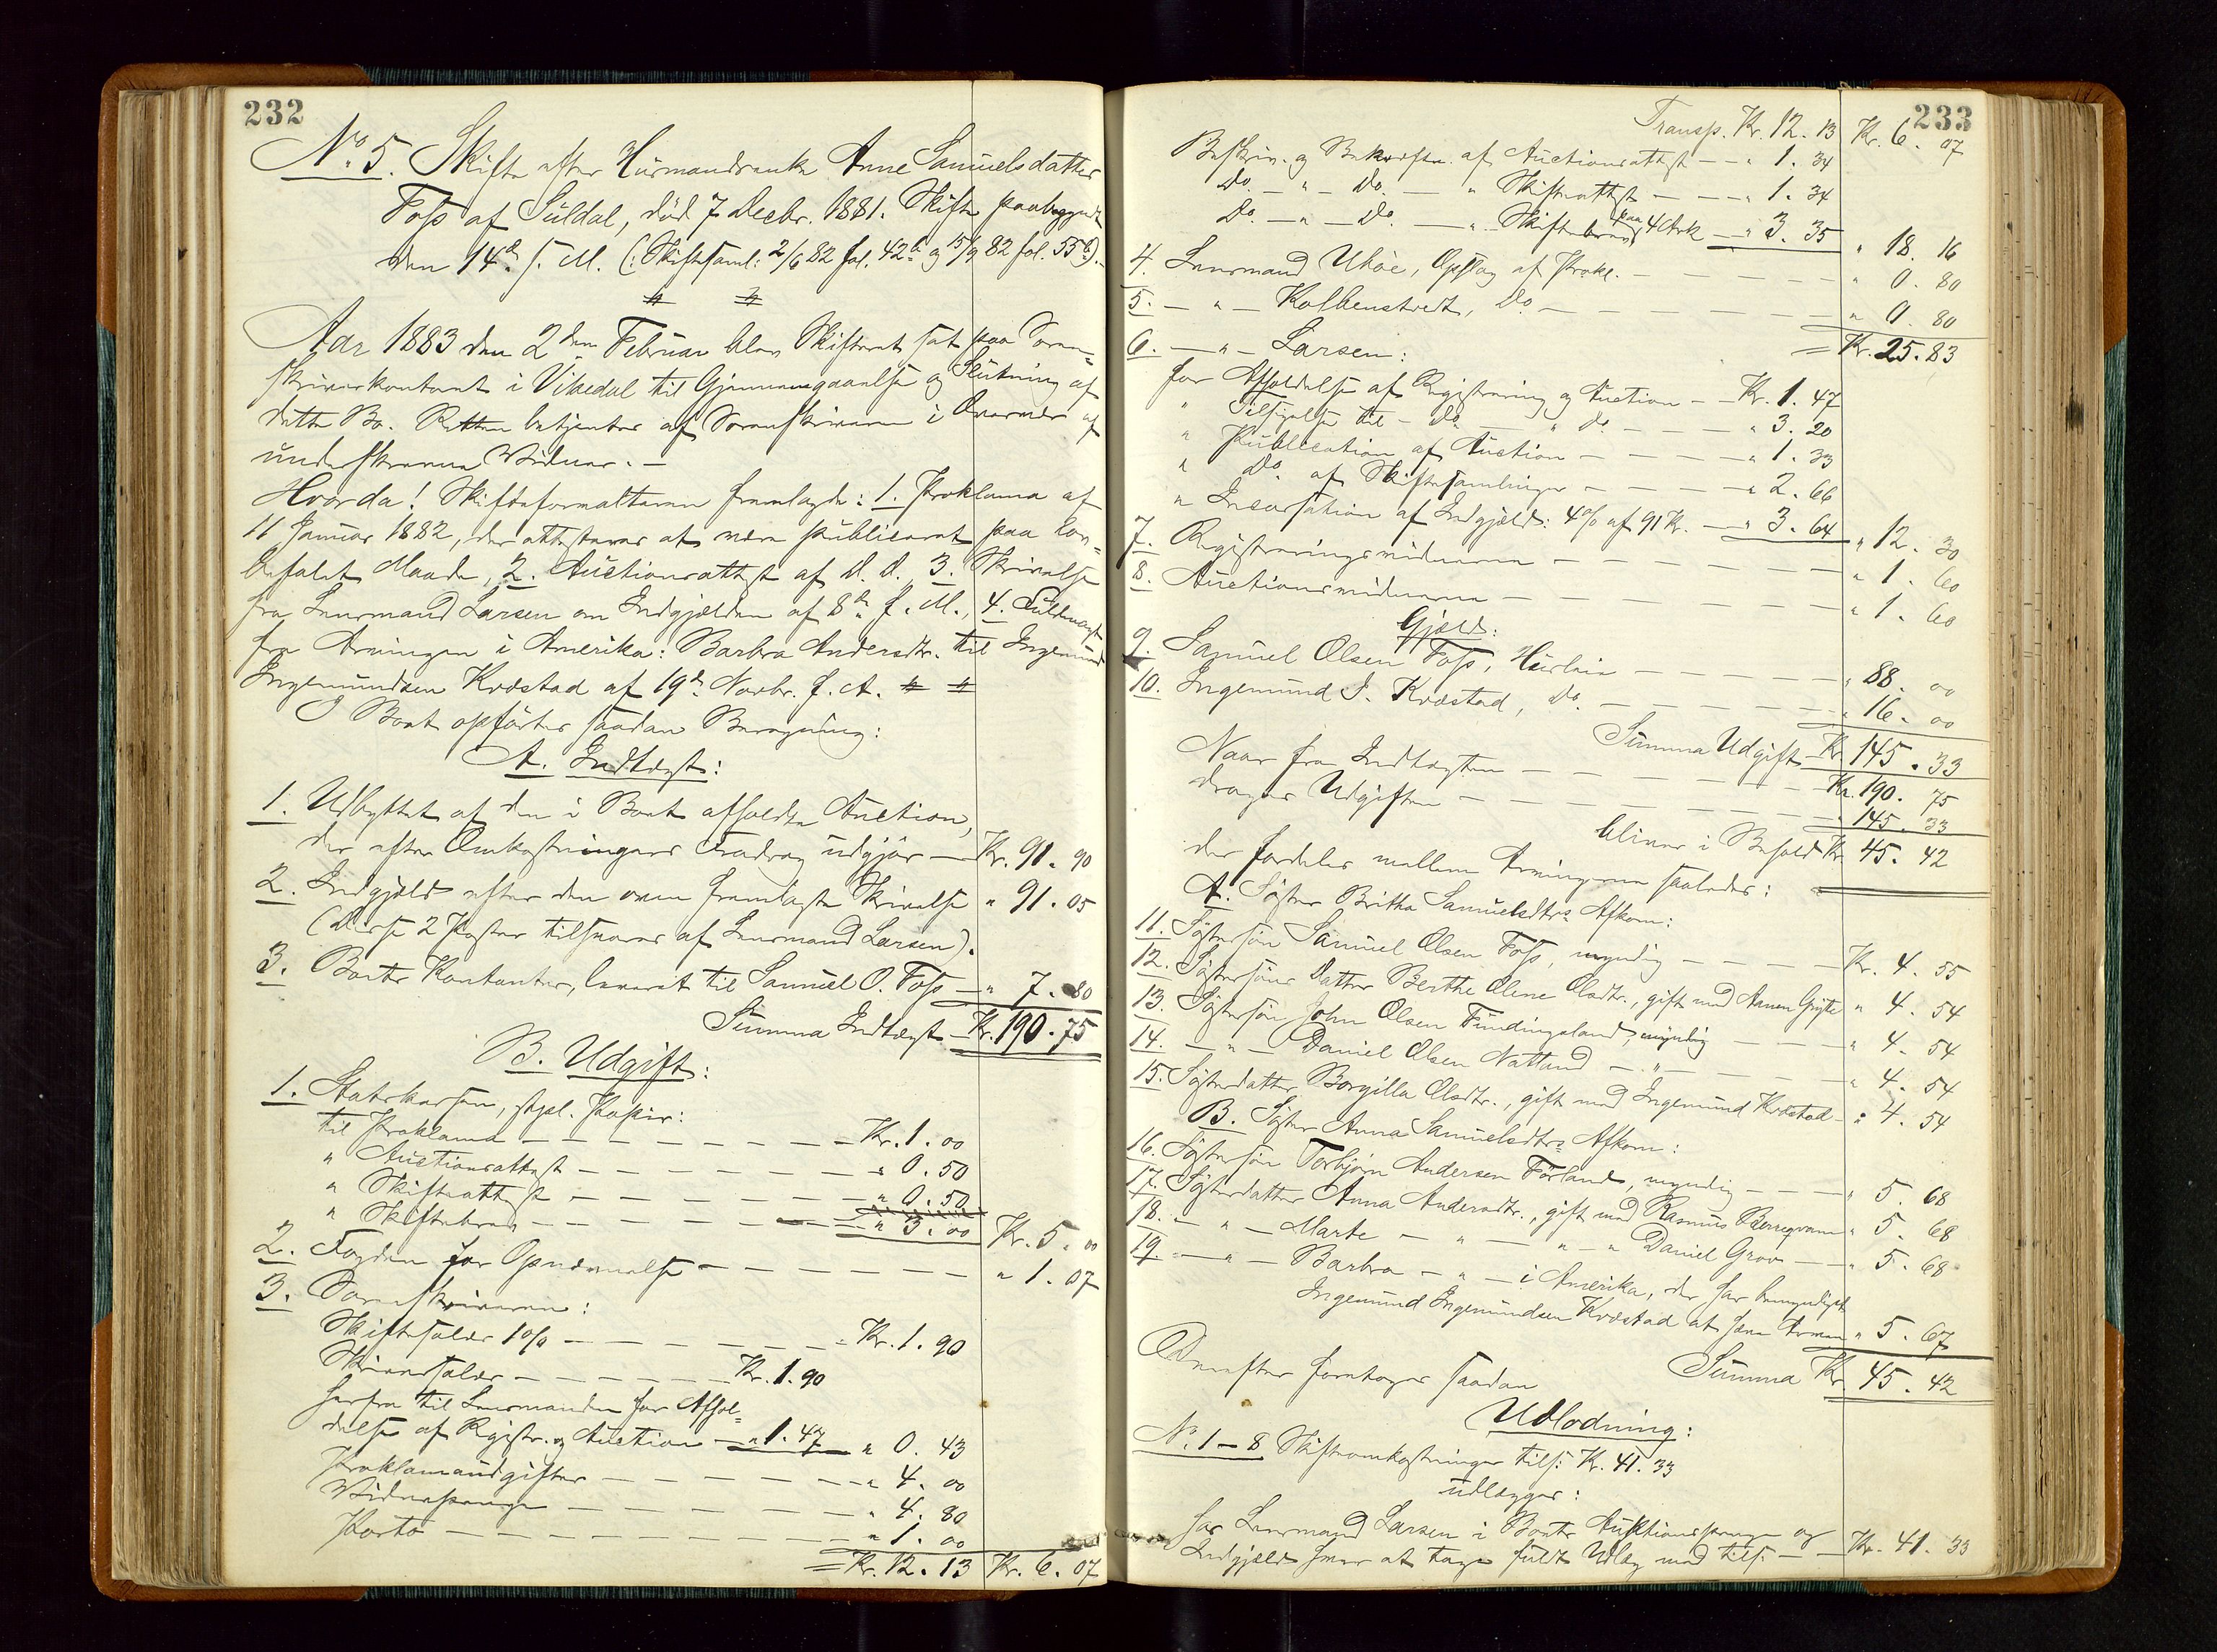 232
No. 5. Skifte efter Huusmandsenke Anne Samuelsdatter
Foss af Suldal, död 7 Decbr. 1881. Skifte paabegyndt
den 14de s. M. (: Skiftesaml: 2/6 82 fol. 42b og 15/9 82 fol. 55b).
Aar 1883 den 2den Februar blev Skifteret sat paa Soren=
skriverkontoret i Vikedal til Gjennemgaaelse og Slutning af
dette Bo. Retten betjentes af Sorenskriveren i Overvær af
underskrevne Vidner. –
Hvorda! Skifteforvalteren fremlagde: 1. Proklama af
11 Januar 1882, der attesteres at være publiceret paa lov=
befalet Maade, 2. Auctionsattest af d. d., 3. Skrivelse
fra Lensmand Larsen om Indgjælden af 8de f. M., 4. Fuldmagt
fra Arvingen i Amerika: Barbra Andersdtr. til Ingemund
Ingemundsen Kvæstad af 19de Novbr. f. A.
I Boet opførtes saadan Beregning:
A. Indtægt:
1. Udbyttet af den i Boet afholdte Auction,
der efter Omkostningers Fradrag udgjør — Kr. 91. 90
2. Indgjæld efter den oven fremlagte Skrivelse " 91. 05
(Disse 2 Poster tilsvares af Lensmand Larsen).
3. Boets Kontanter, leveret til Samuel O. Foss — " 7. 80
Summa Indtægt — Kr. 190. 75
B. Udgift:
1. Statskassen, stpl. Papir:
til Proklama — Kr. 1. 00
" Auctionsattest — " 0. 50
" Skifteattest — " 0. 50
" Skiftebrev — " 3. 00 Kr. 5. 00
2. Fogden for Opnævnelse — " 1. 07
3. Sorenskriveren:
Skiftesalær 1 o/o — Kr. 1. 90
Skriversalær — Kr. 1. 90
herfra til Lensmanden for Afhol=
delse af Registr. og Auction — " 1. 47 " 0. 43
Proklamaudgifter — " 4. 00
Vidnepenge — " 4. 80
Porto — " 1. 00
= Kr. 12. 13 Kr. 6. 07
233
Transp. Kr. 12. 13 Kr. 6. 07
Beskriv. og Bekræftn. af Auctionsattest — " 1. 34
Do. — " — Do. — " Skifteattest — " 1. 34
Do. — " — Do. — " Skiftebrev paa 4 Ark — " 3. 35 " 18. 16
4. Lensmand Uhøe, Opslag af Prokl. — " 0. 80
5. — " — Kolbenstvedt, Do. — " 0. 80
= Kr. 25. 83
6. — " — Larsen:
for Afholdelse af Registrering og Auction — Kr. 1. 47
" Tilsigelse til — do. — " do. — " 3. 20
" Publication af Auction — " 1. 33
" Do. af Skiftesamlinger — " 2. 66
" Incassation af Indgjæld: 4 o/o af 91 Kr. — " 3. 64 " 12. 30
7. Registreringsvidnerne — " 1. 60
8. Auctionsvidnerne — " 1. 60
Gjæld:
9. Samuel Olsen Foss, Huusleie — " 88. 00
10. Ingemund I. Kvæstad, Do. — " 16. 00
Summa Udgift — Kr. 145. 33
Naar fra Indtægten — Kr. 190. 75
drages Udgiften — " 145. 33
bliver i Behold Kr. 45. 42
der fordeles mellem Arvingerne saaledes:
A. Søster Britha Samuelsdtrs Afkom:
11. Søstersøn Samuel Olsen Foss, myndig — Kr. 4. 55
12. Søstersøns Datter Berthe Oline Olsdtr., gift med Aanen Gryte " 4. 54
13. Søstersøn John Olsen Fundingsland, myndig — " 4. 54
14. — " — Daniel Olsen Natland — " — " 4. 54
15. Søsterdatter Borgilla Olsdtr., gift med Ingemund Kvæstad — " 4. 54
B. Søster Anna Samuelsdtrs Afkom:
16. Søstersøn Torbjørn Andersen Førland, myndig — " 5. 68
17. Søsterdatter Anna Andersdtr., gift med Rasmus Bjerregrann " 5. 68
18. — " — Marte — " — " — " Daniel Grov — " 5. 68
19. — " — Barbra — " — i Amerika, der har bemyndiget
Ingemund Ingemundsen Kvæstad at hæve Arven " 5. 67
Summa Kr. 45. 42
Derefter foretoges saadan
Udlodning:
No. 1 – 8 Skifteomkostninger tils: Kr. 41. 33
udlægges:
hos Lensmand Larsen i Boets Auktionspenge og
Indgjæld hver at tage fuldt Udlæg med tils: — Kr. 41. 33